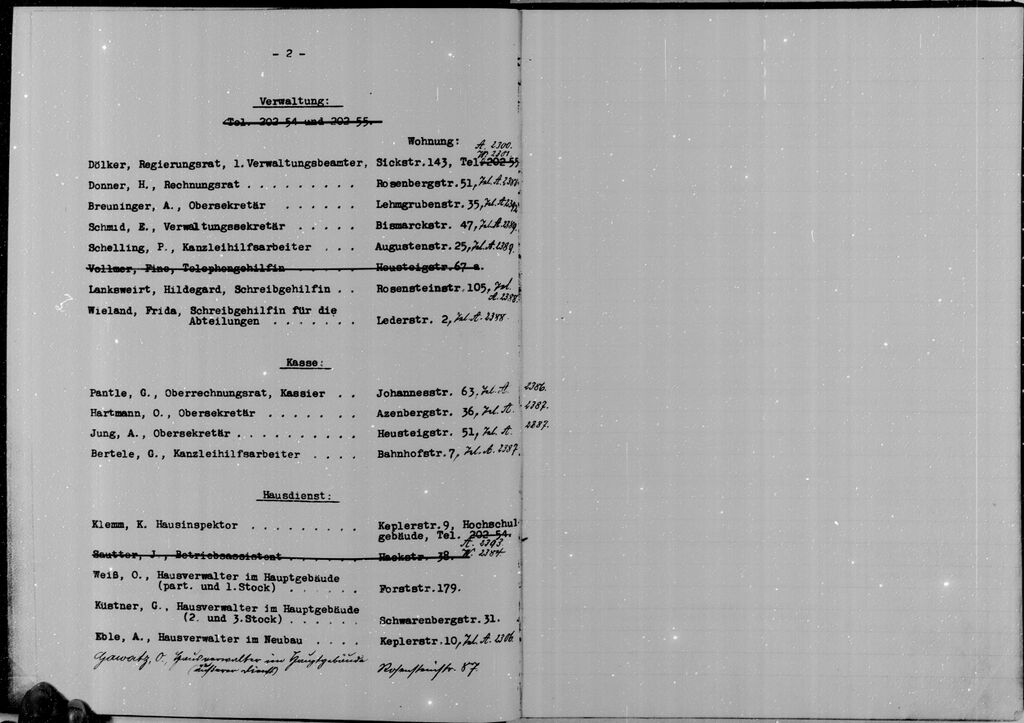 - 2 -
Verwaltung:
Tel. 202 54 und 202 55.
Wohnung: A. 2300.
W. 2301.
Dölker, Regierungsrat, 1. Verwaltungsbeamter, Sickstr. 143, Tel. 202 55
Donner, H., Rechnungsrat . . . . . . . . . Rosenbergstr. 51, Tel. A.
Breuninger, A., Obersekretär . . . . . . Lehmgrubenstr. 35, Tel. A.
Schmid, E., Verwaltungssekretär . . . . . Bismarckstr. 47, Tel. A.
Schelling, P., Kanzleihilfsarbeiter . . . Augustenstr. 25, Tel. A. 2389.
Vollmer, Fine, Telephongehilfin . . . . . Heusteigstr. 67 a.
Lanksweirt, Hildegard, Schreibgehilfin . . Rosensteinstr. 105, Tel.
A. 2388.
Wieland, Frida, Schreibgehilfin für die
Abteilungen . . . . . . . Lederstr. 2, Tel. A. 2388.
Kasse:
Pantle, G., Oberrechnungsrat, Kassier . . Johannesstr. 63, Tel. A. 2386.
Hartmann, O., Obersekretär . . . . . . . Azenbergstr. 36, Tel. A. 2387.
Jung, A., Obersekretär . . . . . . . . . Heusteigstr. 51, Tel. A. 2387.
Bertele, G., Kanzleihilfsarbeiter . . . . Bahnhofstr. 7, Tel. A. 2387.
Hausdienst:
Klemm, K. Hausinspektor . . . . . . . . . Keplerstr. 9, Hochschul-
gebäude, Tel. 202 54.
A. 2393
Sautter, J., Betriebsassistent . . . . . Hackstr. 38. W. 2384
Weiß, O., Hausverwalter im Hauptgebäude
(part. und 1. Stock) . . . . . . Forststr. 179.
Küstner, G., Hausverwalter im Hauptgebäude
(2. und 3. Stock) . . . . . . Schwarenbergstr. 31.
Eble, A., Hausverwalter im Neubau . . . . Keplerstr. 10, Tel. A. 2306.
Gawatz, O., Hausverwalter im Hauptgebäude
(äußerer Dienst) Rosensteinstr. 87.